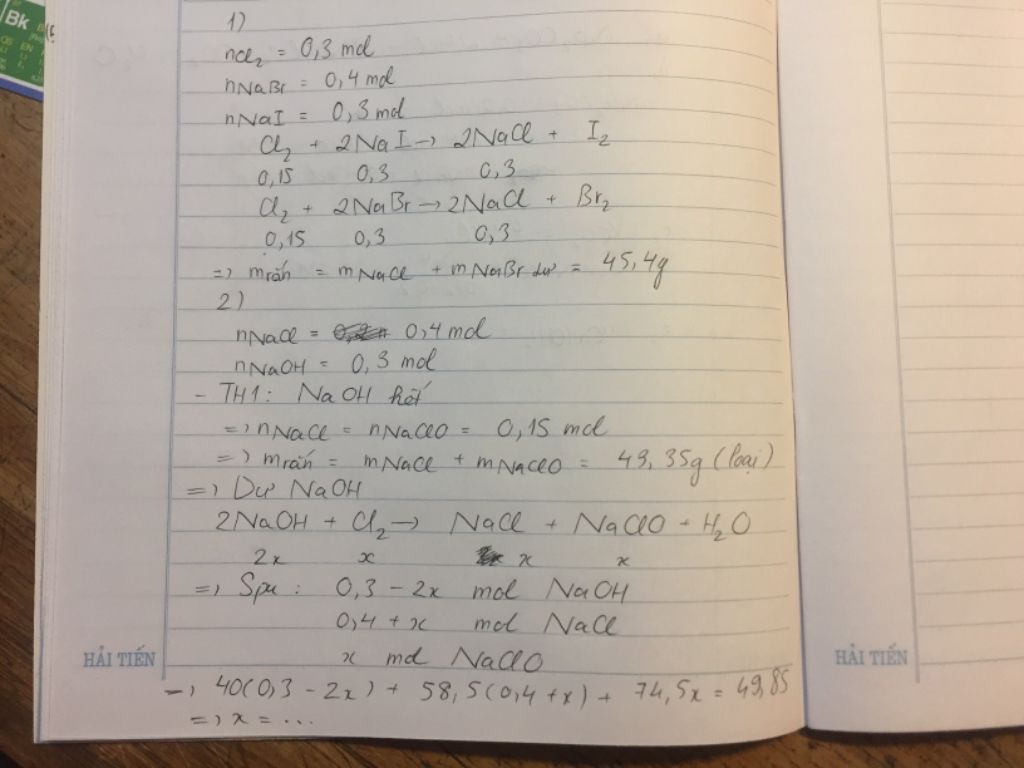 Bk
1)
nCl₂ = 0,3 mol
nNaBr = 0,4 mol
nNaI = 0,3 mol
Cl₂ + 2NaI → 2NaCl + I₂
0,15 0,3 0,3
Cl₂ + 2NaBr → 2NaCl + Br₂
0,15 0,3 0,3
=> mrắn = mNaCl + mNaBr dư = 45,4g
2)
nNaCl = 0,4 mol
nNaOH = 0,3 mol
- TH1: NaOH hết
=> nNaCl = nNaClO = 0,15 mol
=> mrắn = mNaCl + mNaClO = 43,35g (loại)
=> Dư NaOH
2NaOH + Cl₂ → NaCl + NaClO + H₂O
2x x x x
=> Spu: 0,3 - 2x mol NaOH
0,4 + x mol NaCl
x mol NaClO
HẢI TIẾN
HẢI TIẾN
→ 40(0,3 - 2x) + 58,5(0,4 + x) + 74,5x = 49,85
=> x = ...